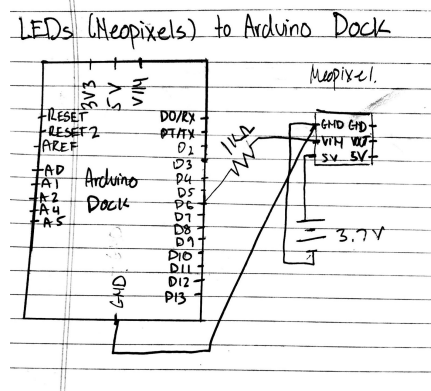 LEDs (Neopixels) to Arduino Dock
Neopixel.
3V3 5V VIN
RESET
RESET 2
AREF
A0
A1
A2
A4
A5
Arduino
Dock
D0/RX
D1/TX
D2
D3
D4
D5
D6
D7
D8
D9
D10
D11
D12
D13
GND
1KΩ
GND GND
VIN VOUT
5V 5V
3.7V